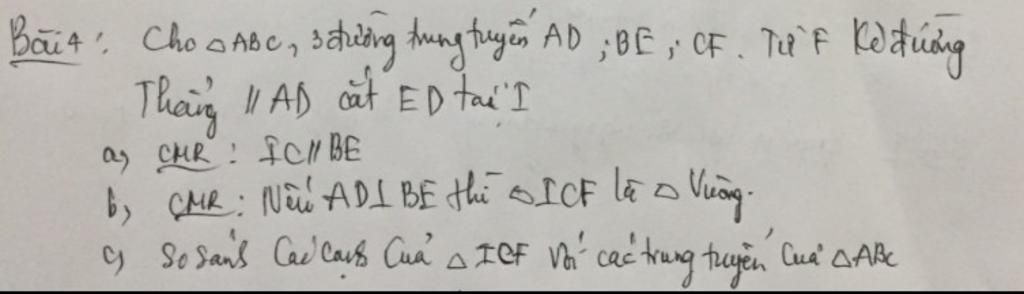 Bài 4: Cho △ABC, 3 đường trung tuyến AD; BE; CF. Từ F kẻ đường
Thẳng // AD cắt ED tại I
a, CMR: IC // BE
b, CMR: Nếu AD⊥BE thì △ICF là △ Vuông.
c, So sánh Các cạnh Của △ICF với các trung tuyến Của △ABC